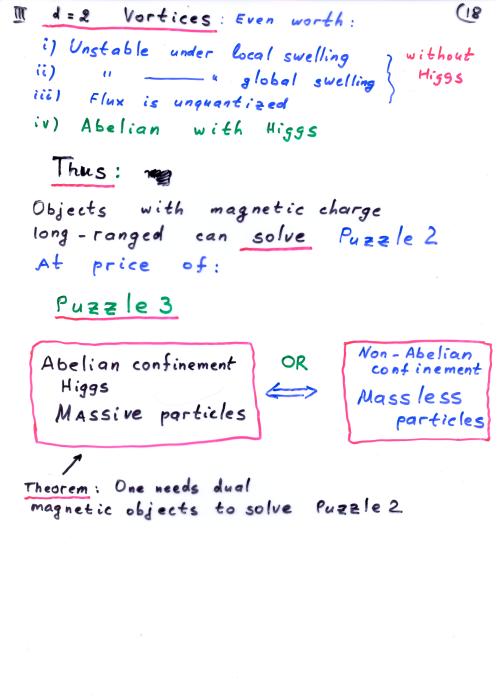 III d=2 Vortices: Even worth: 18
i) Unstable under local swelling
ii) " —— " global swelling
iii) Flux is unquantized
without Higgs
iv) Abelian with Higgs
Thus:
Objects with magnetic charge
long-ranged can solve Puzzle 2
At price of:
Puzzle 3
Abelian confinement
Higgs
Massive particles
OR
Non-Abelian
confinement
Massless
particles
Theorem: One needs dual
magnetic objects to solve Puzzle 2